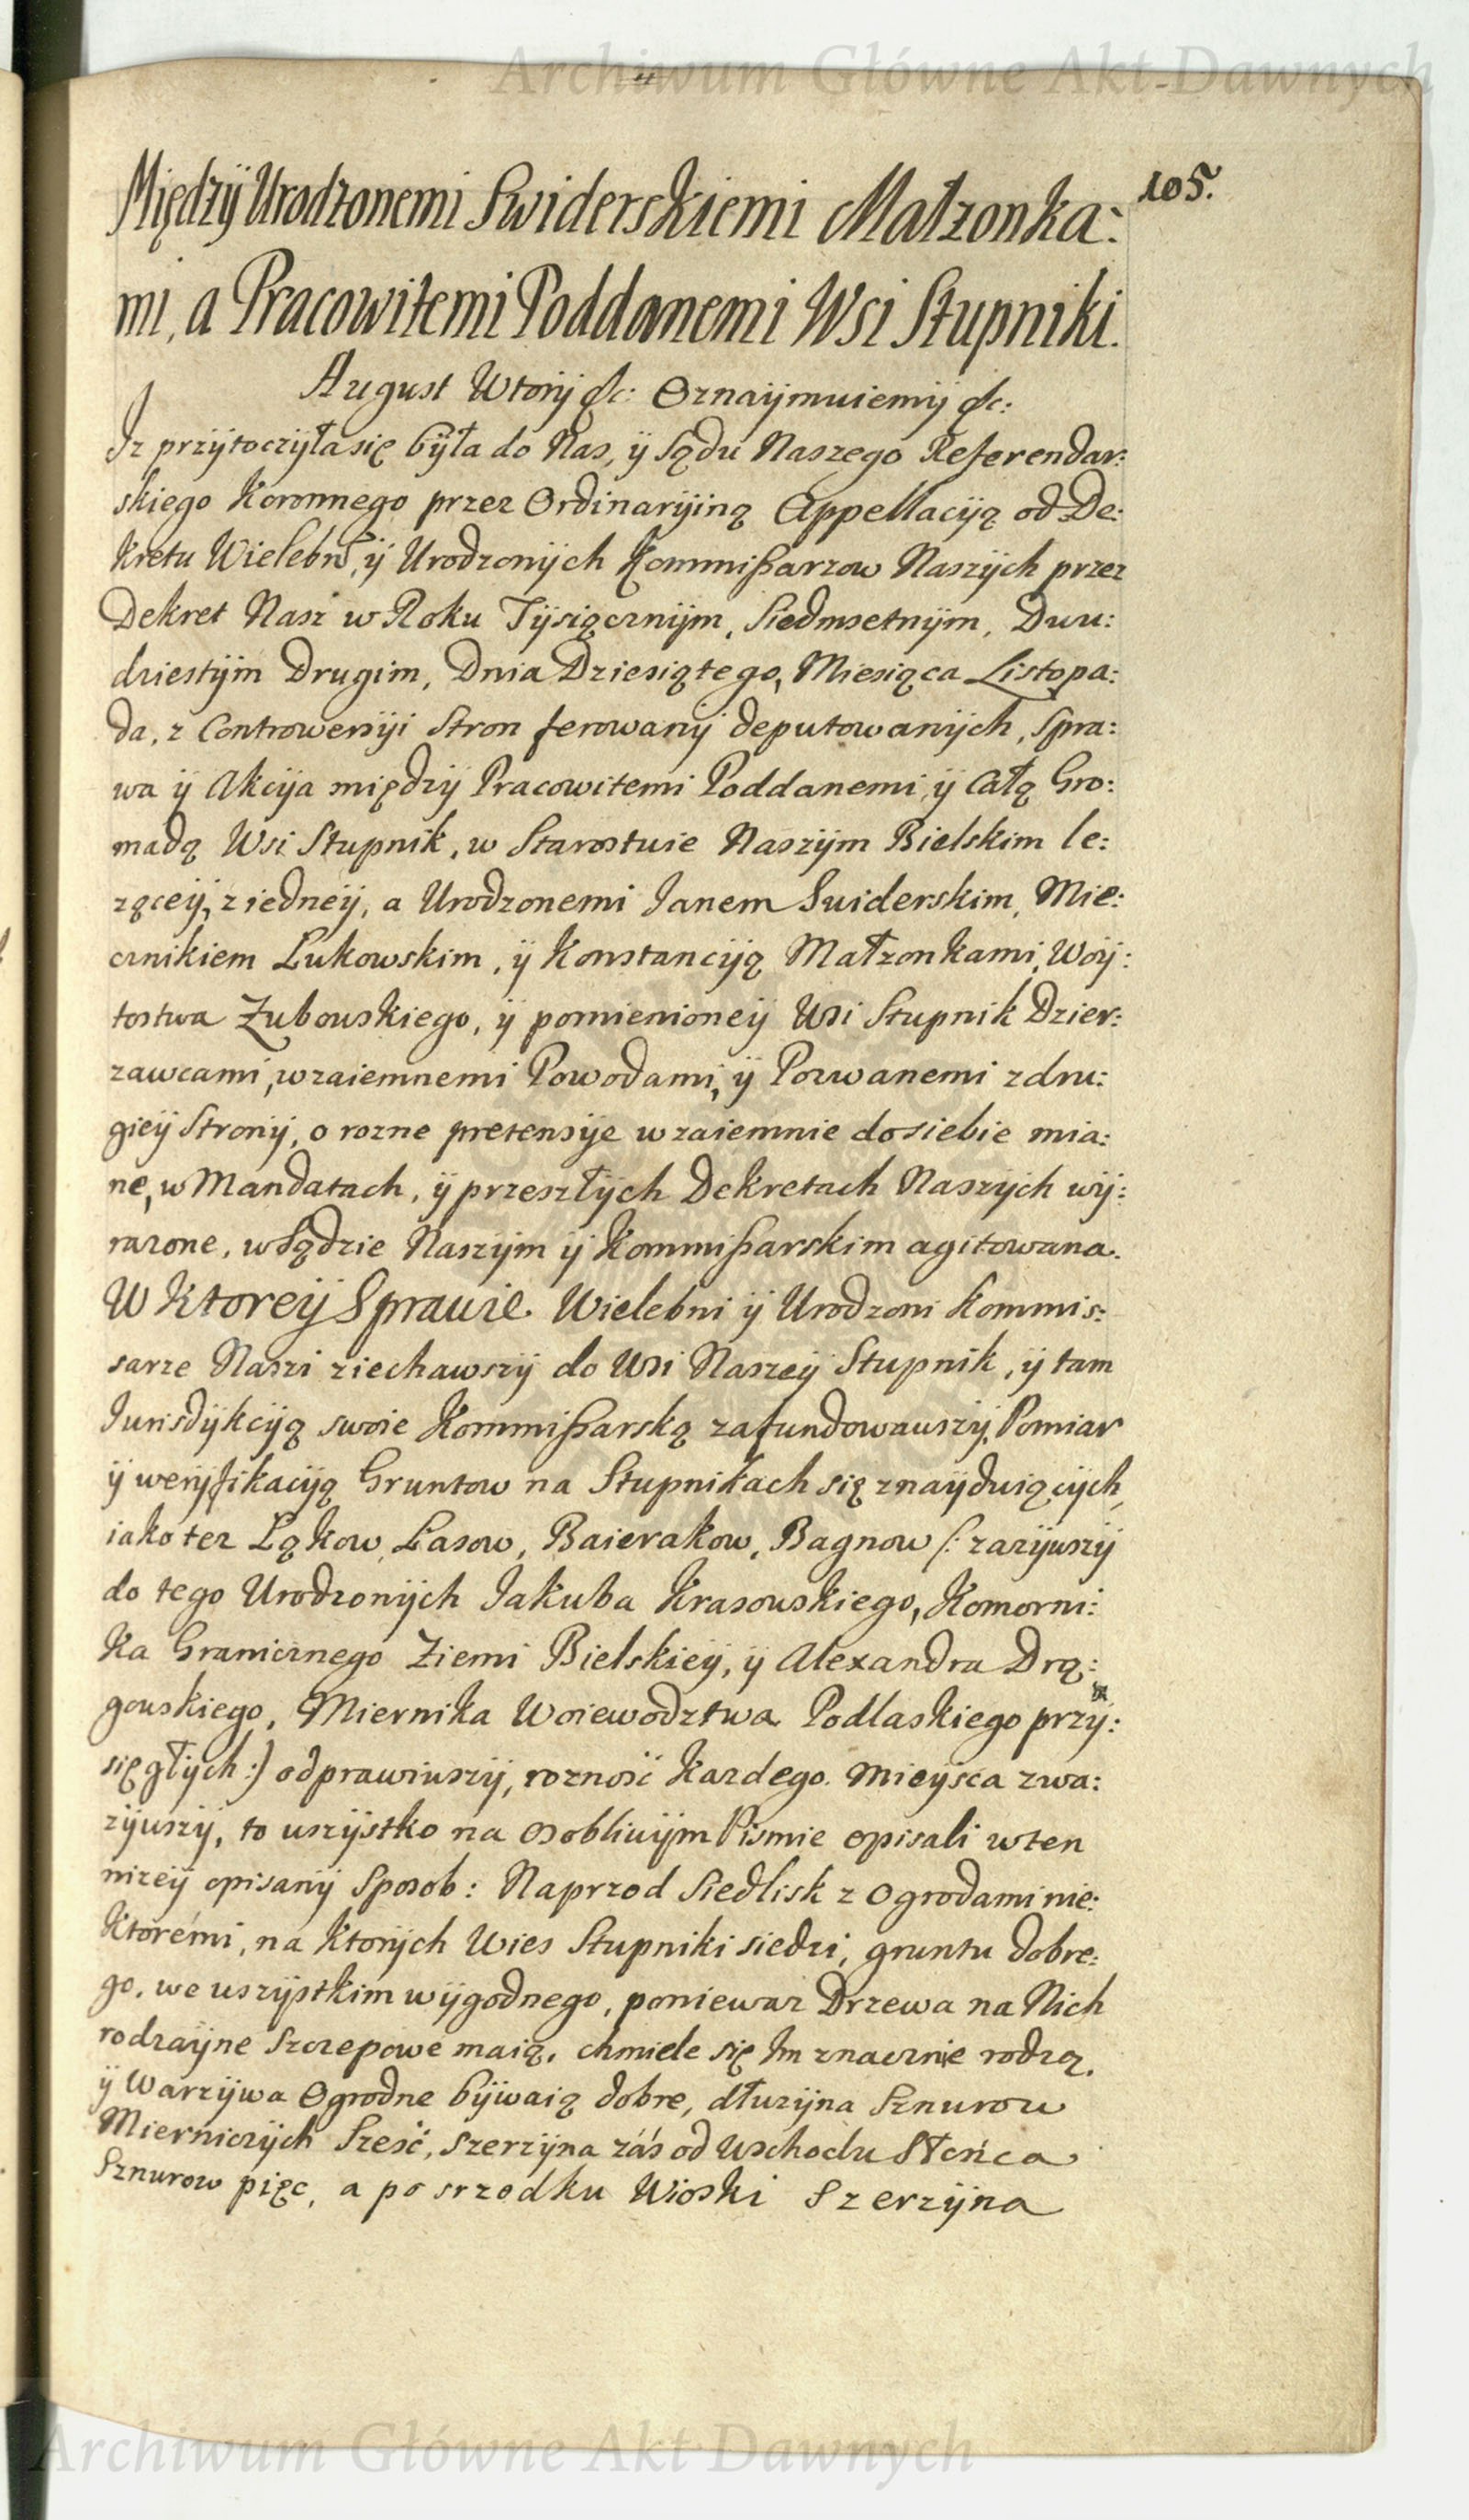 Archiwum Główne Akt Dawnych
105.
Międzÿ Urodzonemi Swiderskiemi Małzonka:
mi, a Pracowitemi Poddanemi Wsi Stupniki.
August Wtorÿ &c: Oznaÿmuiemÿ &c:
Iz przÿtoczÿła się bÿła do Nas, ÿ Sądu Naszego Referendar:
skiego Koronnego przez Ordinarÿiną Appellacÿą od De:
kretu Wielebn, ÿ Urodzonÿch Kommißarzow Naszÿch przez
Dekret Nasz w Roku Tÿsiącznÿm, Siedmsetnÿm, Dwu:
dziestÿm Drugim, Dnia Dziesiątego, Miesiąca Listopa:
da, z Controwersÿi Stron ferowanÿ deputowanÿch, Spra:
wa ÿ Akcÿa międzÿ Pracowitemi Poddanemi, ÿ Całą Gro:
madą Wsi Stupnik, w Starostwie Naszÿm Bielskim le:
ząceÿ, z iedneÿ, a Urodzonemi Ianem Swiderskim, Mie:
cznikiem Łukowskim, ÿ Konstancÿą Małzonkami, Woÿ:
tostwa Zubowskiego, ÿ pomienioneÿ Wsi Stupnik Dzier:
zawcami, wzaiemnemi Powodami, ÿ Pozwanemi z dru:
gieÿ Stronÿ, o rozne pretensÿe wzaiemnie do siebie mia:
ne, w Mandatach, ÿ przeszłÿch Dekretach Naszÿch wÿ:
razone, w Sądzie Naszÿm ÿ Kommißarskim agitowana.
W Ktoreÿ Sprawie. Wielebni ÿ Urodzoni Kommis:
sarze Naszi ziechawszÿ do Wsi Naszeÿ Stupnik, ÿ tam
Iurisdÿkcÿą swoie Kommißarską zafundowawszÿ, Pomiar
ÿ werÿfikacÿą Gruntow na Stupnikach się znaÿduiącÿch,
iako tez Łąkow, Lasow, Baierakow, Bagnow /: zazÿwszÿ
do tego Urodzonÿch Iakuba Krasowskiego, Komorni:
ka Granicznego Ziemi Bielskieÿ, ÿ Alexandra Drą:
gowskiego, Miernika Woiewodztwa Podlaskiego przÿ:
sięgłÿch :/ odprawiwszÿ, roznosć kazdego. Mieÿsca zwa:
zÿwszÿ, to wszÿstko na osobliwÿm Pismie opisali w ten
nizeÿ opisanÿ Sposob: Naprzod Siedlisk z Ogrodami nie:
ktoremi, na ktorÿch Wies Stupniki siedzi, gruntu dobre:
go, we wszÿstkim wÿgodnego, poniewaz Drzewa na Nich
rodzaÿne Szczepowe maią, chmiele się Im znacznie rodzą,
ÿ Warzÿwa Ogrodne bÿwaią dobre, dłuzÿna Sznurow
Mierniczÿch Szesć, Szerzÿna záś od Wschodu Słońca
Sznurow pięc, a po srzodku Wioski Szerzÿna
Archiwum Główne Akt Dawnych